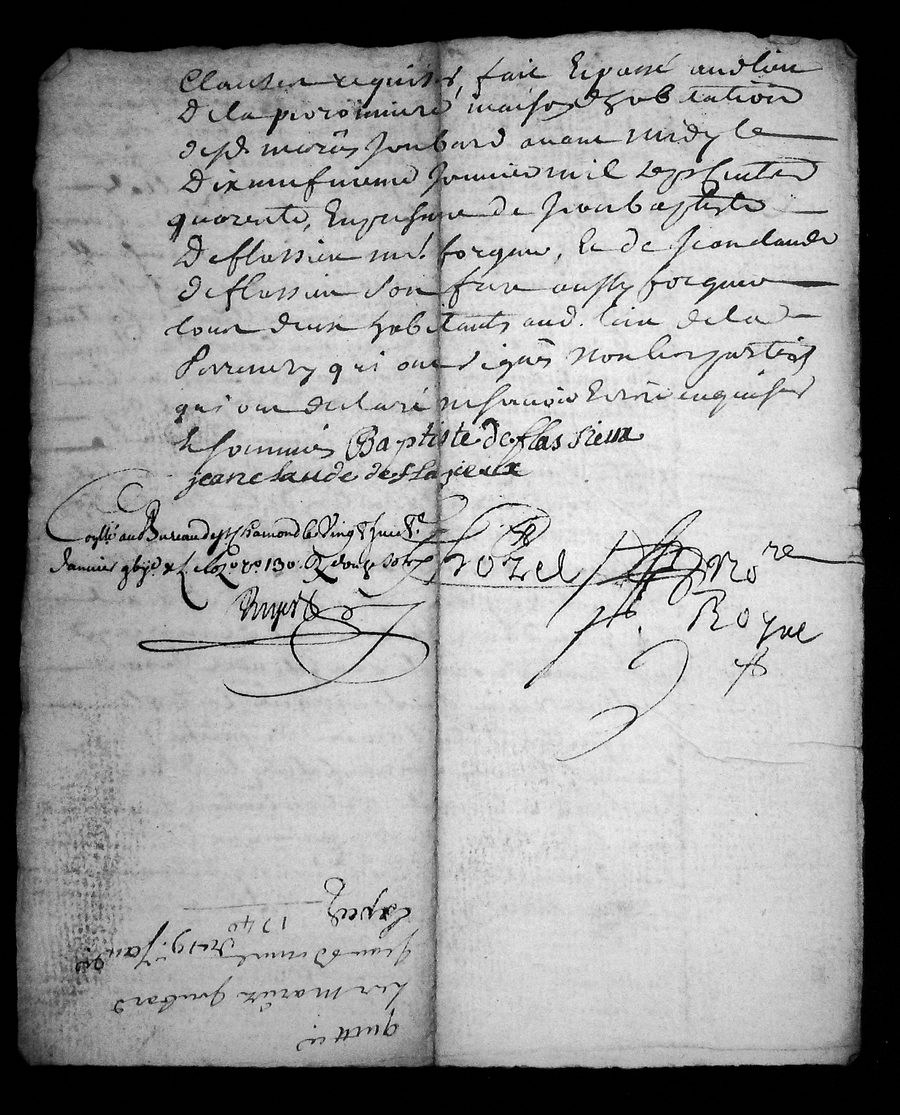 Clauses requises, fait & passé aud. lieu
de la pironniere maison d'habitation
desd. mariés Joubard avant midy le
dix neufvieme Janvier mil sept cents
quarente, En presence de Jean baptiste
deflassieu mt. forgeur, & de Jean claude
deflassieu son frere aussy forgeur
tous deux habitants aud. lieu de la
qui ont signés non les parties
qui ont declaré ne scavoir Ecrire enquises
& sommées Baptiste de flassieux
jean claude de flasieux
au Bureau de St. chamond le Vingt
Janvier R. douze sols
Chozel no.re
Royal
quittance
Les Mariés Joubard
Du 19e. Janr.
1740
Exped.